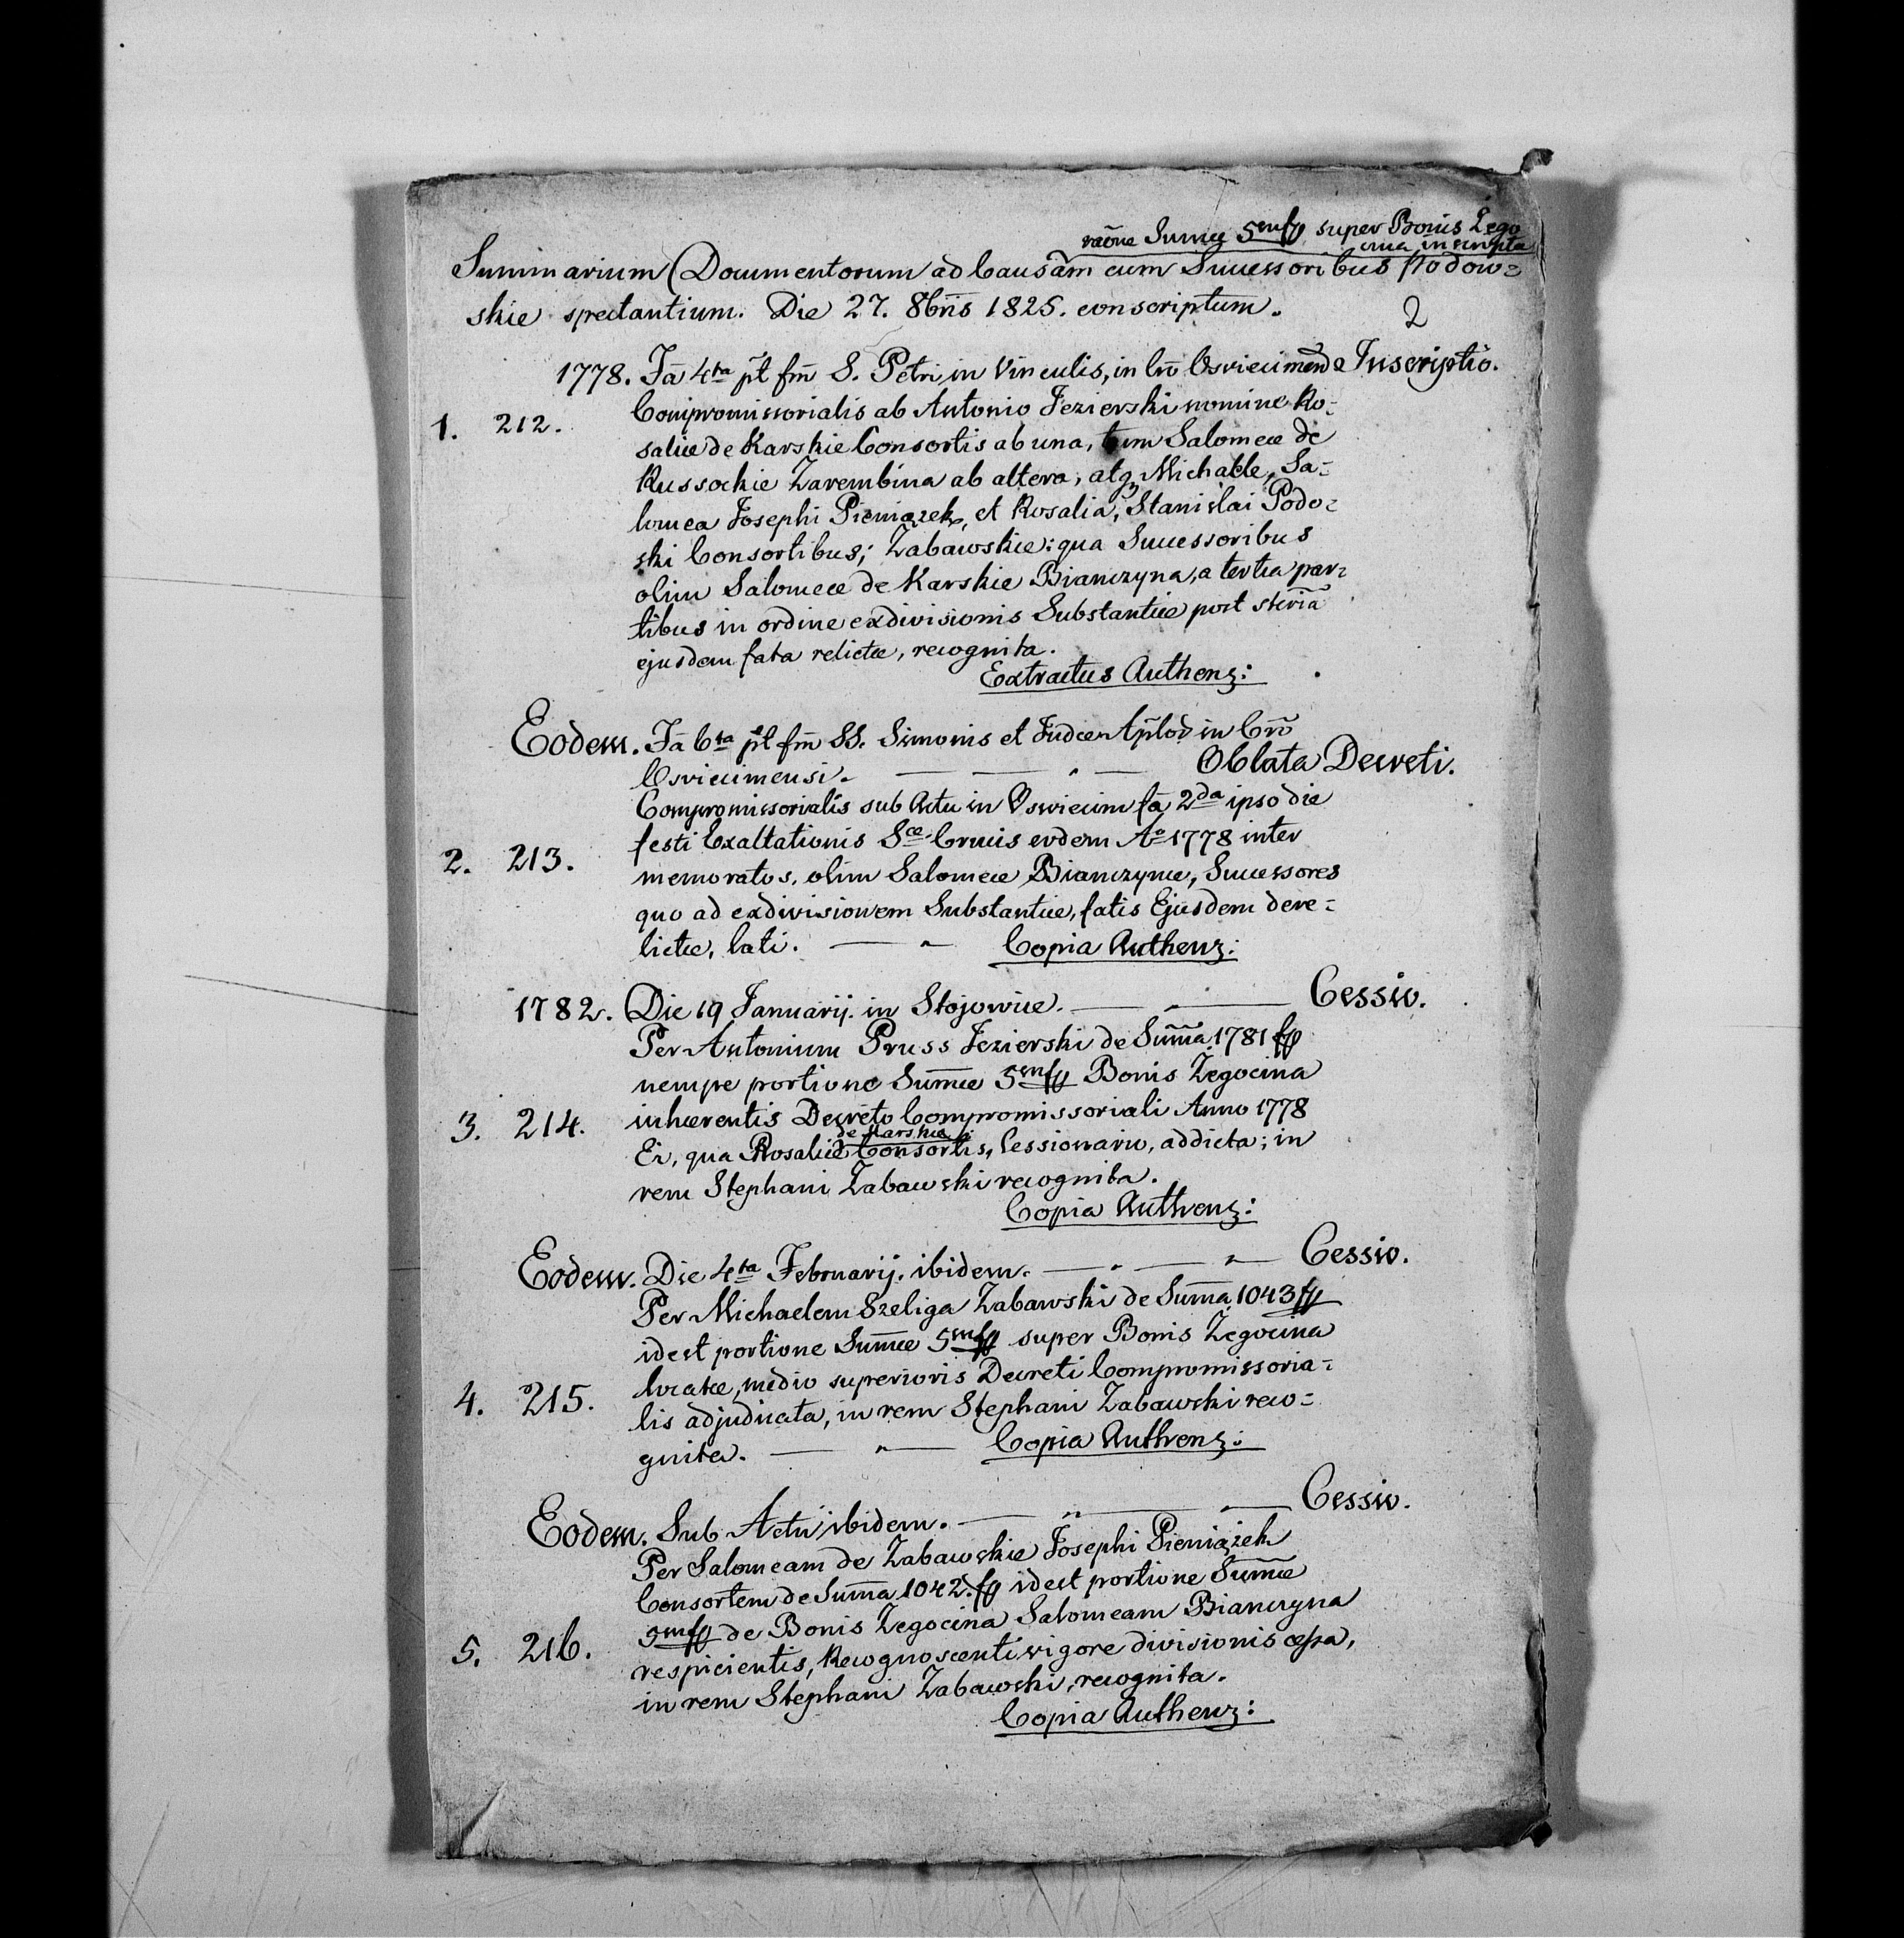 raōne Sumæ 5 mfp super Bonis Zego
cina inscripta
Summarium Documentorum ad Causam cum Successoribus Podow=
skie spectantium. Die 27. 8bris 1825. conscriptum.
2
1778. Fa 4ta pt fm S. Petri in Vinculis, in Cm Osviecimen de Inscriptio.
Compromissorialis ab Antonio Jezierski nomine Ro=
1. 212.
saliæ de Karskie Consortis ab una, tum Salomeæ de
Russockie Zarembina ab altera, atq Michaele, Sa=
lomea Josephi Pieniązek, et Rosalia, Stanislai Podo=
ski Consortibus; Zabawskie: qua Successoribus
olim Salomeæ de Karskie Bianczyna, a tertia par=
tibus in ordine exdivisionis Substantiæ post
ejusdem fata relictæ, recognita.
Extractus Authenz:
Eodem. Fa 6ta pt fm SS. Simonis et Judæ Aplor in Crō
Osviecimensi. Oblata Decreti.
Compromissorialis sub Actu in Oswiecim fa 2da ipso die
festi Exaltationis Scæ Crucis eodem Ao 1778 inter
2. 213.
memoratos, olim Salomeæ Bianczynæ, Successores
quo ad exdivisionem Substantiæ, fatis Ejusdem dere=
lictæ, lati. Copia Authenz:
1782. Die 19 Januarij. in Stojowice. Cessio.
Per Antonium Pruss Jezierski de Suma 1781 fp
nempe portione Sumæ 5mfp Bonis Zegocina
inhærentis Decreto Compromissoriali Anno 1778
3. 214.
de Karskie
Ei, qua Rosaliæ Consortis, Cessionario, addicta; in
rem Stephani Zabawski recognita.
Copia Authenz:
Eodem. Die 4ta Februarij. ibidem. Cessio.
Per Michaelem Szeliga Zabawski de Suma 1043 fp
idest portione Sumæ 5mfp super Bonis Zegocina
locatæ, medio superioris Decreti Compromissoria=
4. 215.
lis adjudicata, in rem Stephani Zabawski reco=
gnita. Copia Authenz:
Eodem. Sub Actu ibidem. Cessio.
Per Salomeam de Zabawskie Josephi Pieniążek
Consortem de Suma 1042. fp idest portione Sumæ
5mfp de Bonis Zegocina Salomeam Bianczyna
5. 216.
respicientis, Recognoscenti vigore divisionis cessa,
in rem Stephani Zabawski, recognita.
Copia Authenz: